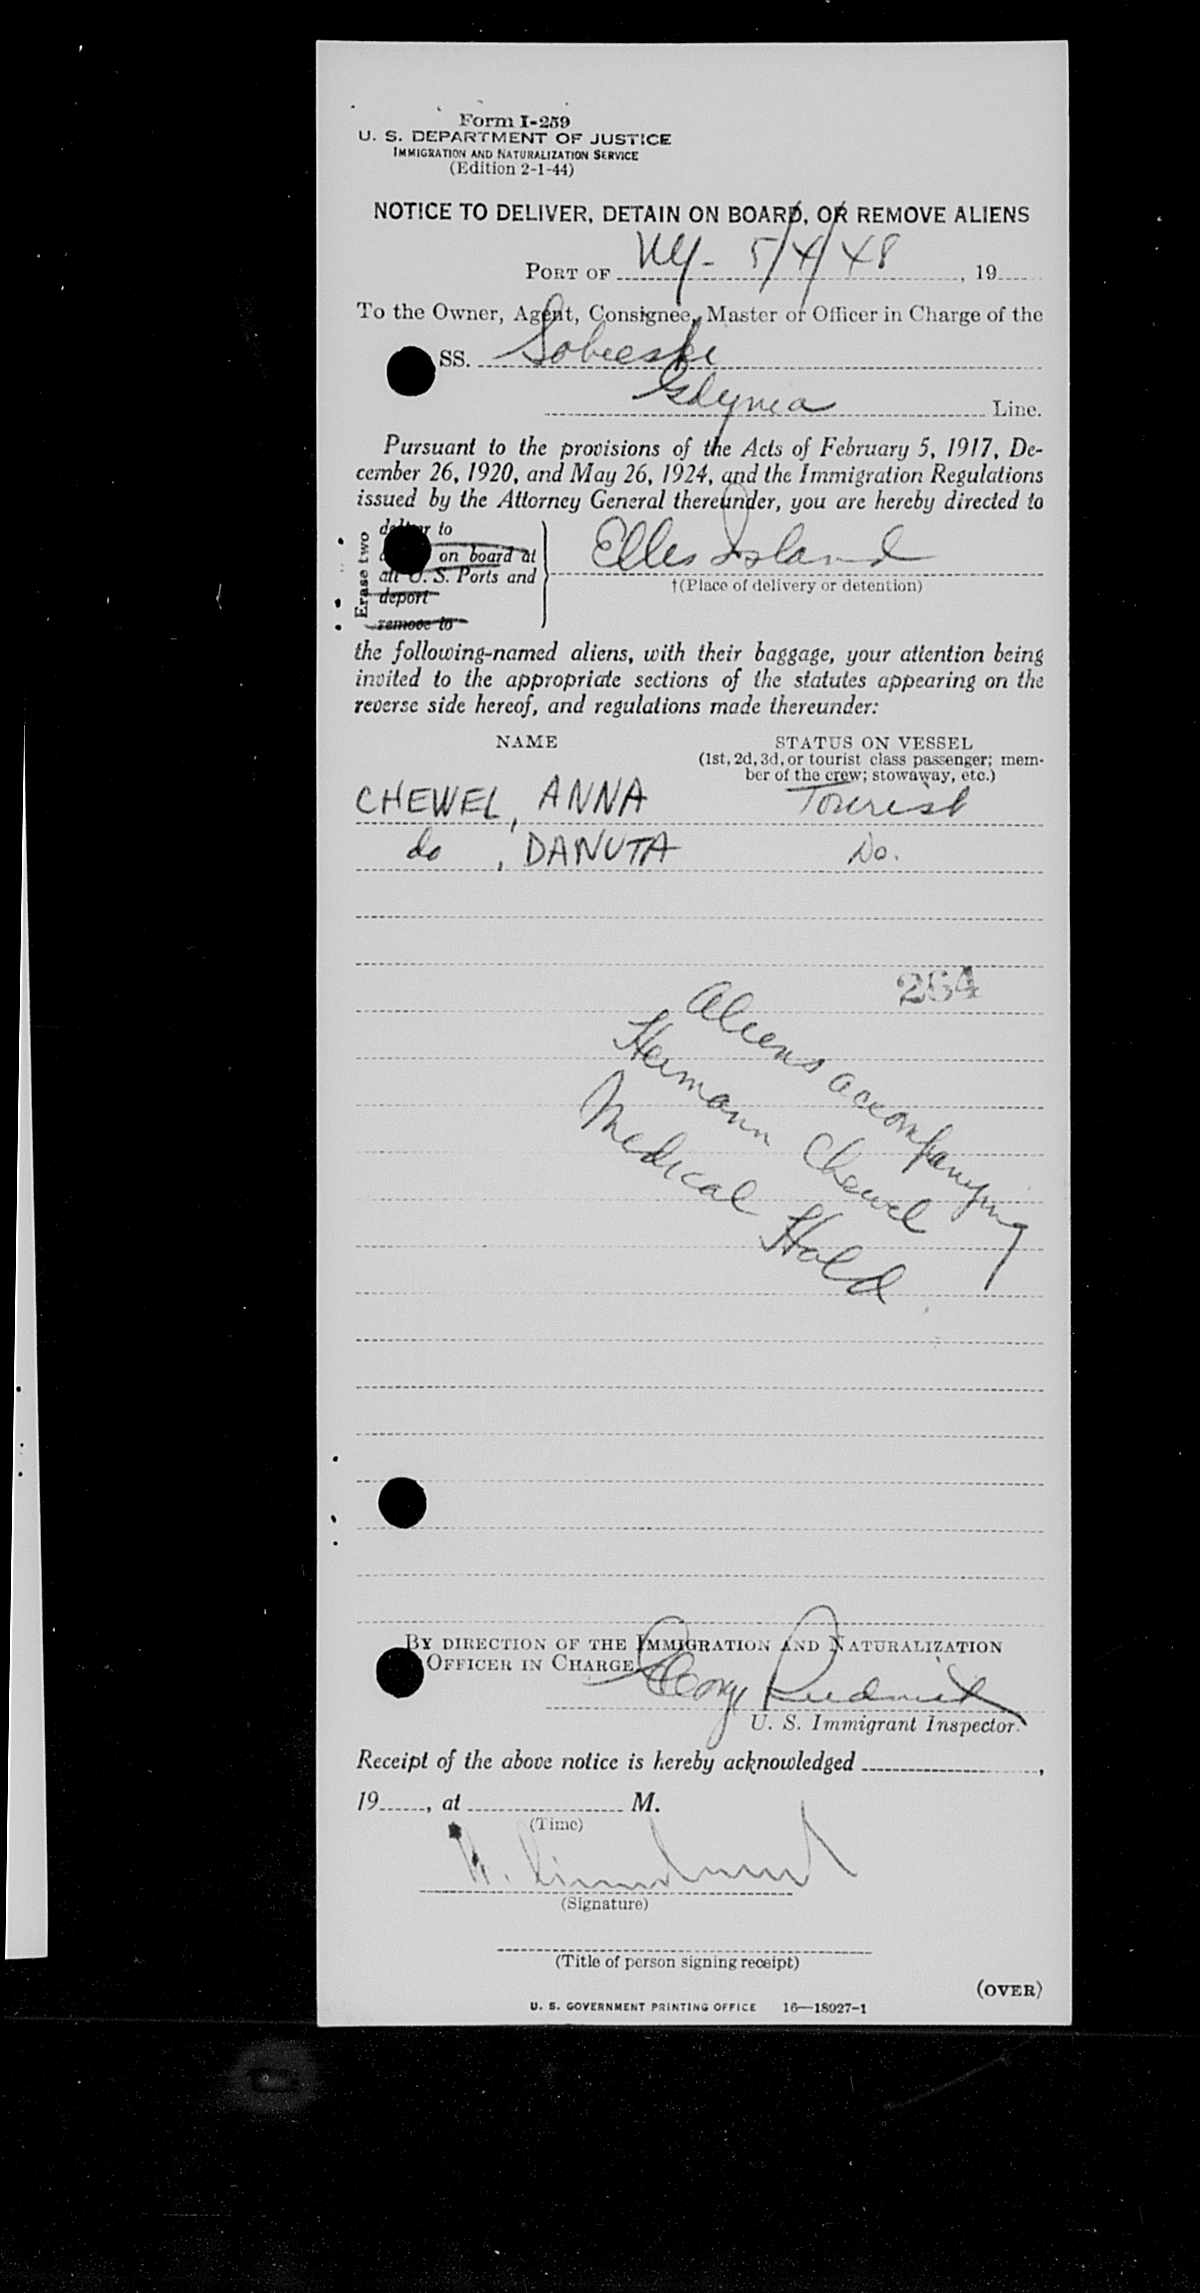 Form I-259
U. S. DEPARTMENT OF JUSTICE
IMMIGRATION AND NATURALIZATION SERVICE
(Edition 2-1-44)
NOTICE TO DELIVER, DETAIN ON BOARD, OR REMOVE ALIENS
PORT OF NY- 5/4/48, 19
To the Owner, Agent, Consignee, Master or Officer in Charge of the
SS. Sobieski
Gdynia Line.
Pursuant to the provisions of the Acts of February 5, 1917, De-
cember 26, 1920, and May 26, 1924, and the Immigration Regulations
issued by the Attorney General thereunder, you are hereby directed to
Erase two
deliver to
on board at
all U. S. Ports and
deport
remove to
Elles Island
†(Place of delivery or detention)
the following-named aliens, with their baggage, your attention being
invited to the appropriate sections of the statutes appearing on the
reverse side hereof, and regulations made thereunder:
NAME STATUS ON VESSEL
(1st, 2d, 3d, or tourist class passenger; mem-
ber of the crew; stowaway, etc.)
CHEWEL, ANNA Tourist
do, DANUTA Do.
264
Aliens accompanying
Hermann Chewel
Medical Hold
BY DIRECTION OF THE IMMIGRATION AND NATURALIZATION
OFFICER IN CHARGE
George Rudnick
U. S. Immigrant Inspector.
Receipt of the above notice is hereby acknowledged ,
19 , at M.
(Time)
(Signature)
(Title of person signing receipt)
(OVER)
U. S. GOVERNMENT PRINTING OFFICE 16—18927-1